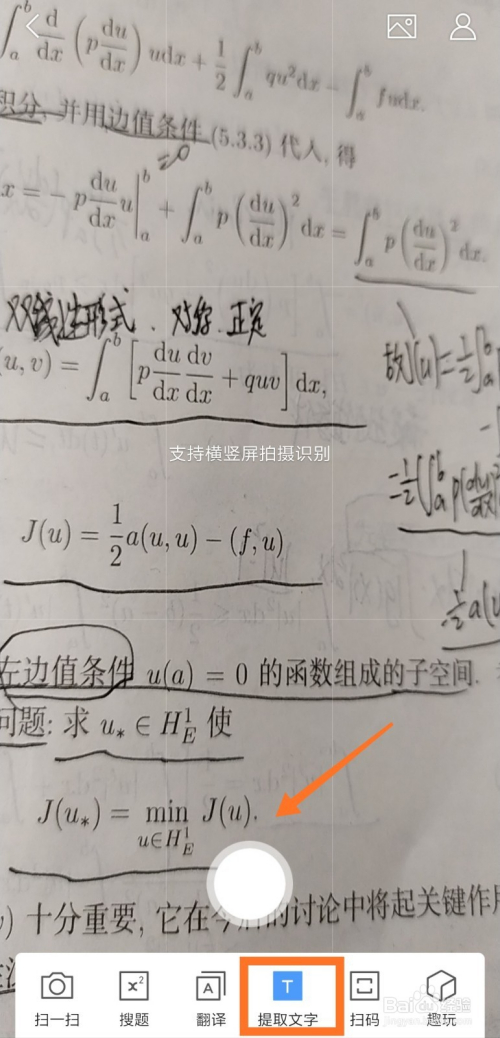 ∫_a^b d/dx (p du/dx) udx + 1/2 ∫_a^b qu²dx − ∫_a^b fudx.
积分, 并用边值条件 (5.3.3) 代入, 得
=0
x = − p du/dx u|_a^b + ∫_a^b p (du/dx)² dx = ∫_a^b p (du/dx)² dx.
双线性形式、对称、正定
(u, v) = ∫_a^b [p du/dx dv/dx + quv] dx,
故J(u)=½∫_a^b
支持横竖屏拍摄识别
=½(∫_a^b p(du/dx)²
J(u) = 1/2 a(u, u) − (f, u)
½a(u
左边值条件 u(a) = 0 的函数组成的子空间.
问题: 求 u_* ∈ H_E^1 使
J(u_*) = min_{u∈H_E^1} J(u).
) 十分重要, 它在今后的讨论中将起关键作用
扫一扫 搜题 翻译 提取文字 扫码 趣玩
Baidu 经验
jingyan.baidu.com